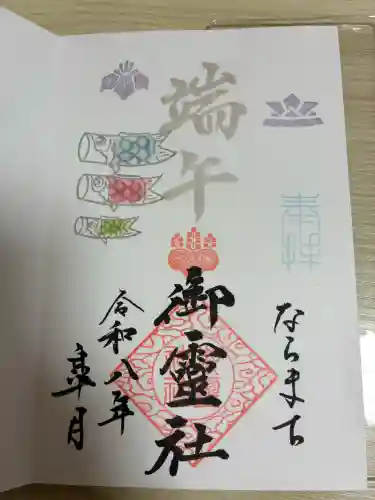 奉拝
ならまち
端午
御靈社
令和八年
皐月